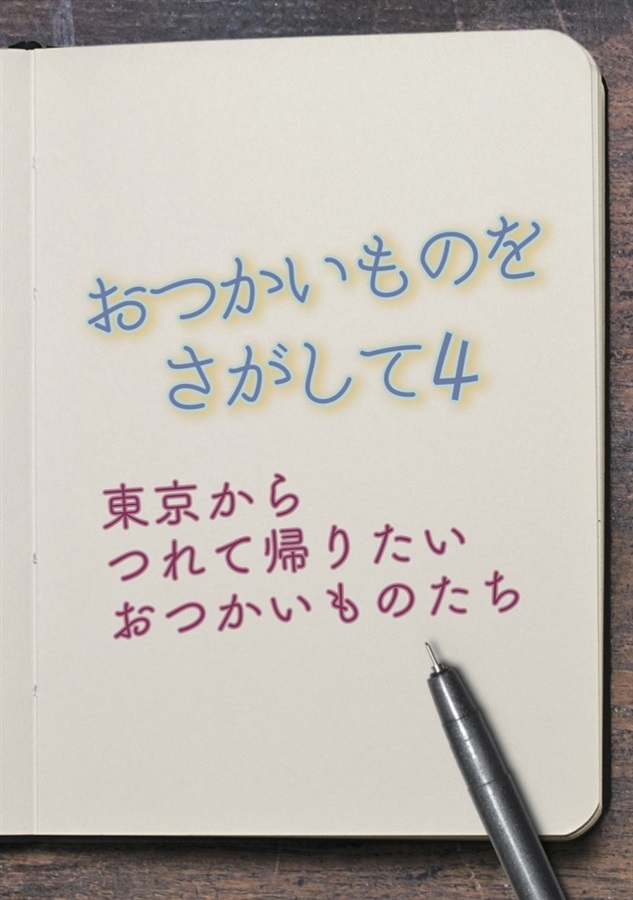 おつかいものを
さがして4
東京から
つれて帰りたい
おつかいものたち